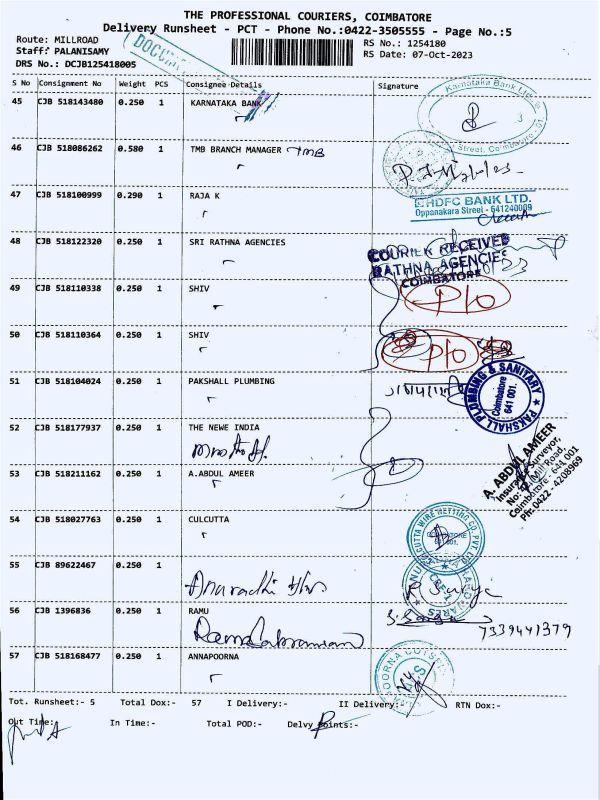 THE PROFESSIONAL COURIERS, COIMBATORE
Delivery Runsheet - PCT - Phone No.:0422-3505555 - Page No.:5
Route: MILLROAD
RS No.: 1254180
Staff: PALANISAMY
RS Date: 07-Oct-2023
DRS No.: DCJB125418005
S No Consignment No Weight PCS Consignee Details Signature
45 CJB 518143480 0.250 1 KARNATAKA BANK
Karnataka Bank Ltd
Street, Coimbatore
46 CJB 518086262 0.580 1 TMB BRANCH MANAGER TMB
47 CJB 518100999 0.290 1 RAJA K
HDFC BANK LTD.
Oppanakara Street - 641240009
48 CJB 518122320 0.250 1 SRI RATHNA AGENCIES
COURIER RECEIVED
RATHNA AGENCIES
COIMBATORE
49 CJB 518110338 0.250 1 SHIV
P/O
50 CJB 518110364 0.250 1 SHIV
P/O
51 CJB 518104024 0.250 1 PAKSHALL PLUMBING
PAKSHALL PLUMBING & SANITARY
Coimbatore
641 001.
52 CJB 518177937 0.250 1 THE NEWE INDIA
53 CJB 518211162 0.250 1 A.ABDUL AMEER
A. ABDUL AMEER
Insurance Surveyor,
Mill Road,
Coimbatore - 641 001
Ph: 0422 - 4208969
54 CJB 518027763 0.250 1 CULCUTTA
CALCUTTA WIRE NETTING CO. PVT. LTD
55 CJB 89622467 0.250 1
R Surya
56 CJB 1396836 0.250 1 RAMU
7339441379
57 CJB 518168477 0.250 1 ANNAPOORNA
Tot. Runsheet:- 5 Total Dox:- 57 I Delivery:- II Delivery:- RTN Dox:-
Out Time:- In Time:- Total POD:- Delvy Points:-